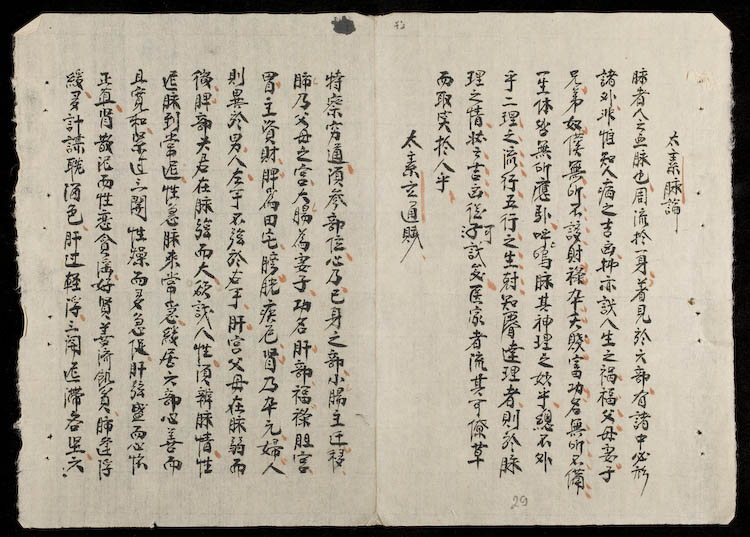 太素脉論
脉者人之血脉也周流於一身着見於六部有諸中必形
諸外非惟知人病之吉凶抑亦識人生之禍福父母妻子
兄弟奴僕無所不該財禄夭賤富功名無所不備
一生休咎無所應引呼嗚脉其神理之妙乎總不外
乎二理之流行五行之生尅知醫達理者則於脉
理之情状之吉凶從可識矣医家者流其可僚草
而取笑於人乎
太素玄通賦
特察窮通須參部位心乃己身之部小腸主迁移
肺乃父母之宮大腸為妻子功名肝部福禄胆宮
胃主資財脾為田宅膀胱疾厄腎乃元婦人
則異於男人左手不強於右手肝宮父母在脉弱而
後脾部夫君在脉強而大欲識人性須辨脉情性
近脉到常近性急脉来常急緩居六部心善而
且寛和緊近三関性燥而多急促肝強盛而心怀
正直腎沉而性恋貪淫好賢善済飢貧肺逢浮
緩多計謀耽酒色肝过軽浮三関近滞各坚六
29